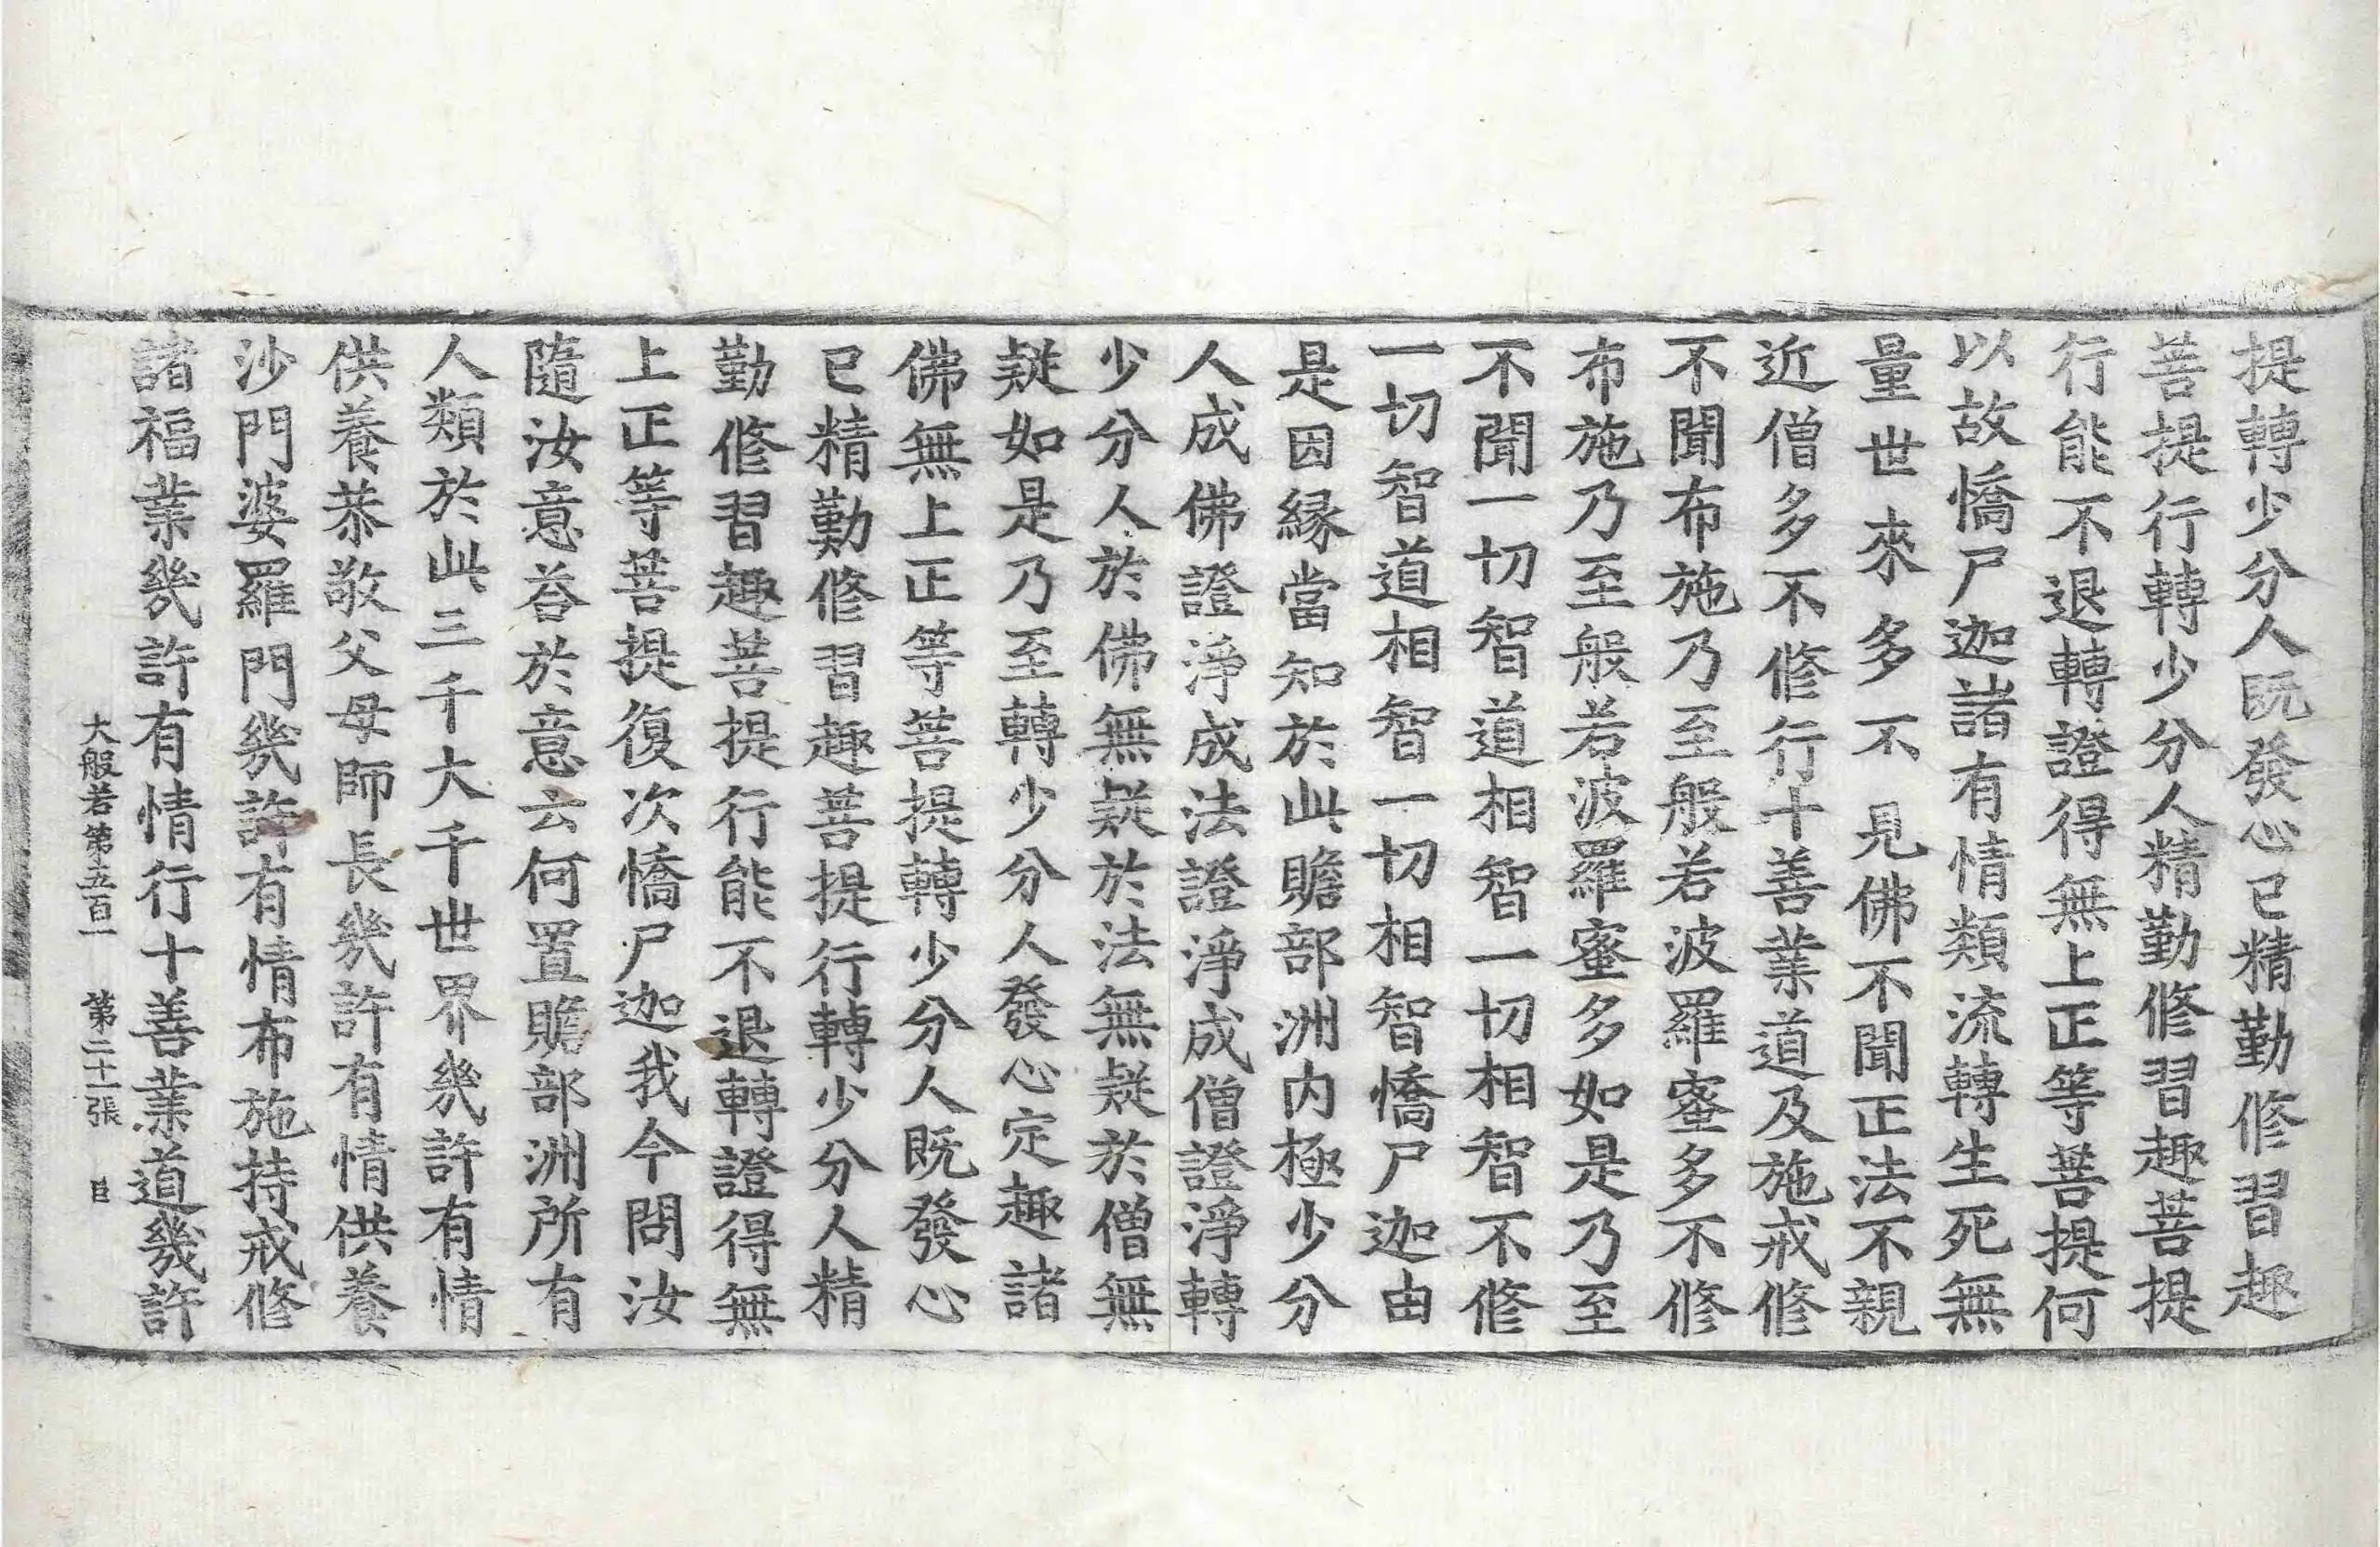 提轉少分人既發心已精勤修習趣
菩提行轉少分人精勤修習趣菩提
行能不退轉證得無上正等菩提何
以故憍尸迦諸有情類流轉生死無
量世來多不見佛不聞正法不親
近僧多不修行十善業道及施戒修
不聞布施乃至般若波羅蜜多不修
布施乃至般若波羅蜜多如是乃至
不聞一切智道相智一切相智不修
一切智道相智一切相智憍尸迦由
是因緣當知於此贍部洲內極少分
人成佛證淨成法證淨成僧證淨轉
少分人於佛無疑於法無疑於僧無
疑如是乃至轉少分人發心定趣諸
佛無上正等菩提轉少分人既發心
已精勤修習趣菩提行轉少分人精
勤修習趣菩提行能不退轉證得無
上正等菩提復次憍尸迦我今問汝
隨汝意荅於意云何置贍部洲所有
人類於此三千大千世界幾許有情
供養恭敬父母師長幾許有情供養
沙門婆羅門幾許有情布施持戒修
諸福業幾許有情行十善業道幾許
大般若第五百一 第二十一張